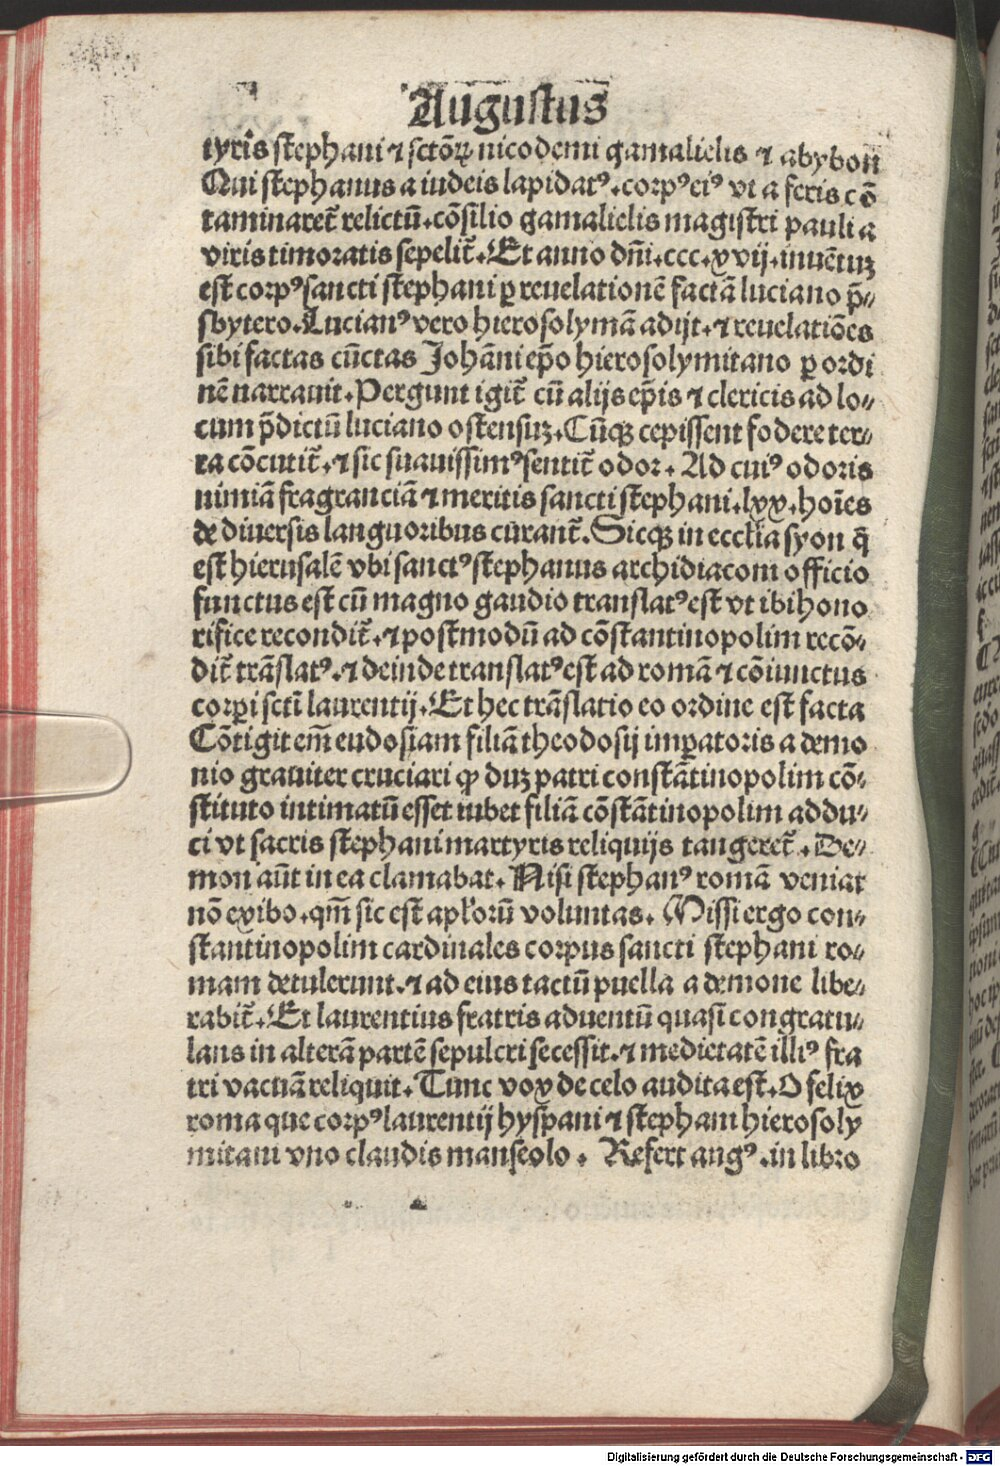 Augustus
tyris stephani ⁊ sctōꝝ nicodemi gamalielis ⁊ abybon
Qui stephanus a iudeis lapidatꝰ. corpꝰ eiꝰ vt a feris cō
taminaret̄ relictū. cōsilio gamalielis magistri pauli a
viris timoratis sepelit̄. Et anno dn̄i. ccc. xvij. inuētuꝫ
est corpꝰ sancti stephani ꝑ reuelationē factā luciano p̄⸗
sbytero. Lucianꝰ vero hierosolymā adijt. ⁊ reuelatiōes
sibi factas cūctas Johāni ep̄o hierosolymitano ꝑ ordi
nē narrauit. Pergunt igit̄ cū alijs ep̄is ⁊ clericis ad lo⸗
cum p̄dictū luciano ostensuꝫ. Cūqꝫ cepissent fodere ter⸗
ra cōcutit̄. ⁊ sic suauissimꝰ sentit̄ odor. Ad cuiꝰ odoris
nimiā fragranciā ⁊ meritis sancti stephani. lxx. hoīes
de diuersis languoribus curant̄. Sicqꝫ in eccl̄ia syon q̄
est hierusalē vbi sanctꝰ stephanus archidiaconi officio
functus est cū magno gaudio translatꝰ est vt ibi hono
rifice recondit̄. ⁊ postmodū ad cōstantinopolim recō⸗
dit̄ trāslatꝰ. ⁊ deinde translatꝰ est ad romā ⁊ cōiunctus
corꝑi scti laurentij. Et hec trāslatio eo ordine est facta
Cōtigit em̄ eudosiam filiā theodosij imꝑatoris a demo
nio grauiter cruciari ꝙ duꝫ patri constātinopolim cō⸗
stituto intimatū esset iubet filiā cōstātinopolim addu⸗
ci vt sacris stephani martyris reliquijs tangeret̄. De⸗
mon aūt in ea clamabat. Nisi stephanꝰ romā veniat
nō exibo. qm̄ sic est apl'orū voluntas. Missi ergo con⸗
stantinopolim cardinales corpus sancti stephani ro⸗
mam detulerunt. ⁊ ad eius tactū puella a demone libe⸗
rabit̄. Et laurentius fratris aduentū quasi congratu⸗
lans in alterā partē sepulcri secessit. ⁊ medietatē illiꝰ fra
tri vacuā reliquit. Tunc vox de celo audita est. O felix
roma que corpꝰ laurentij hyspani ⁊ stephani hierosoly
mitani vno claudis manseolo. Refert augꝰ. in libro
Digitalisierung gefördert durch die Deutsche Forschungsgemeinschaft - DFG